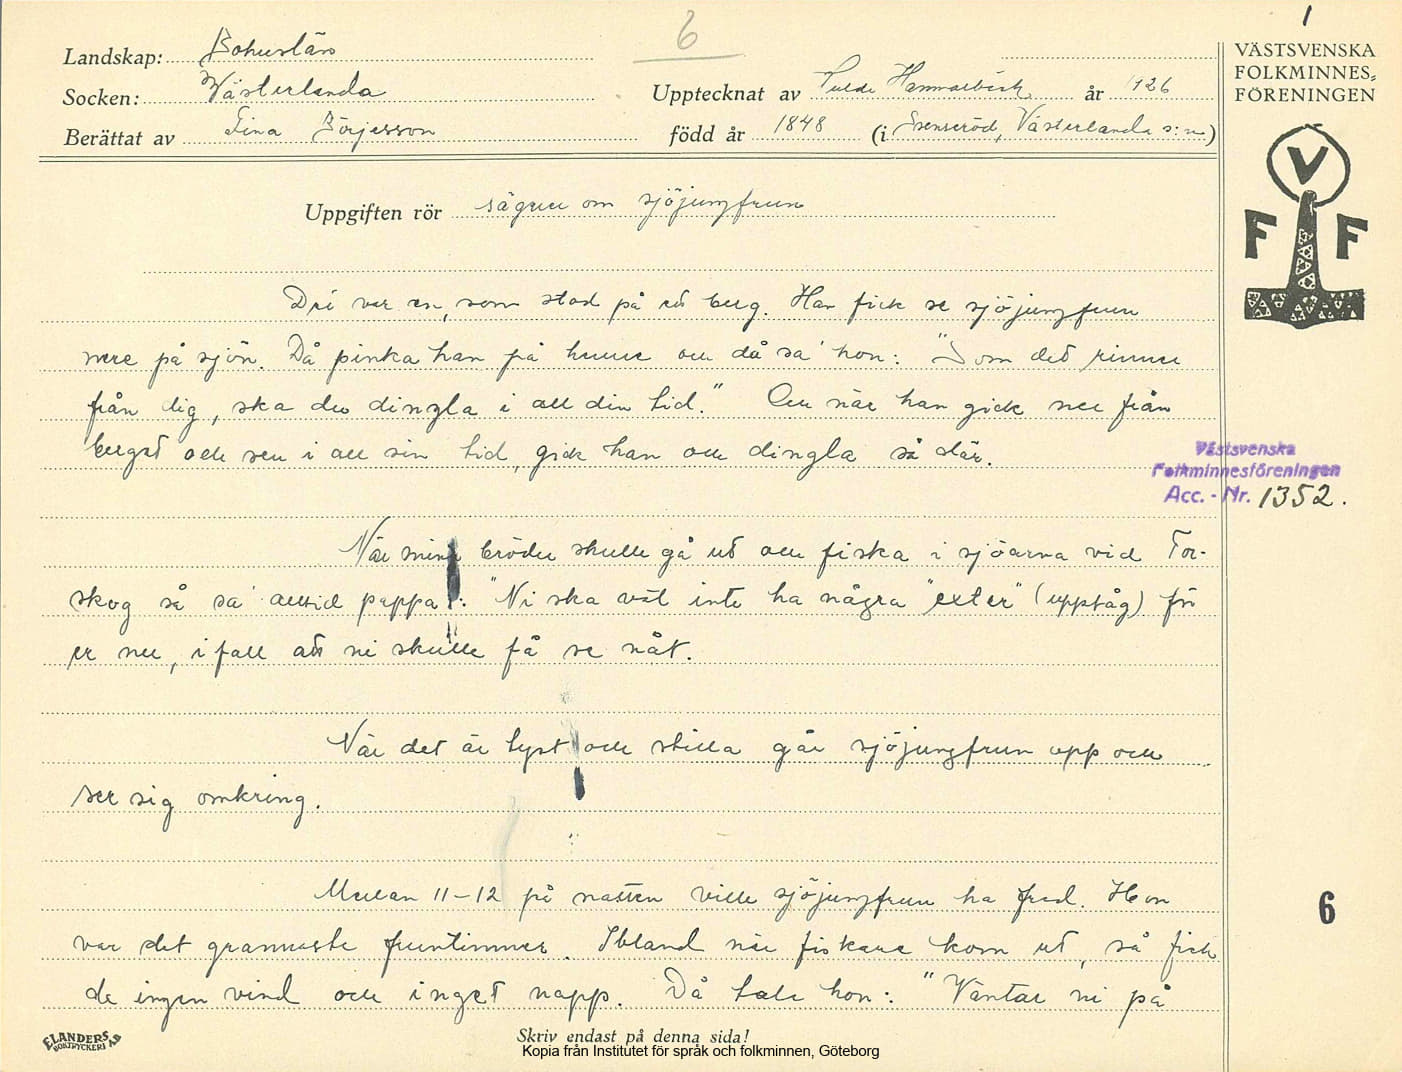 6
1
Landskap: Bohuslän
Socken: Västerlanda
Upptecknat av Hulda Hammarbäck år 1926
Berättat av Tina Börjesson
född år 1848 (i Svenseröd, Västerlanda s:n)
VÄSTSVENSKA
FOLKMINNES=
FÖRENINGEN
V
F F
Uppgiften rör sägner om sjöjungfrun
De' var en, som stod på ett berg. Han fick se sjöjungfrun
nere på sjön. Då pinka han på henne och då sa' hon: "Som det rinner
från dig, ska du dingla i all din tid." Och när han gick ner från
berget och sen i all sin tid, gick han och dingla så där.
Västsvenska
Folkminnesföreningen
Acc. - Nr. 1352.
När mina bröder skulle gå ut och fiska i sjöarna vid Tor-
skog så sa' alltid pappa: "Ni ska väl inte ha några "exter" (upptåg) för
er nu, i fall att ni skulle få se nåt.
När det är tyst och stilla går sjöjungfrun upp och
ser sig omkring.
Mellan 11-12 på natten ville sjöjungfrun ha fred. Hon
var det grannaste fruntimmer. Ibland när fiskare kom ut, så fick
de ingen vind och inget napp. Då tala hon: "Väntar ni på
6
ELANDERS AB
BOKTRYCKERI
Skriv endast på denna sida!
Kopia från Institutet för språk och folkminnen, Göteborg